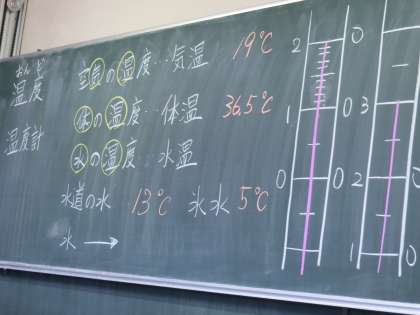 おんど
温度
温度計
空気の温度…気温 19℃
体の温度…体温 36.5℃
水の温度…水温
水道の水 13℃ 氷水 5℃
水 →
2 0
1 0 3
0 0 2
1 0